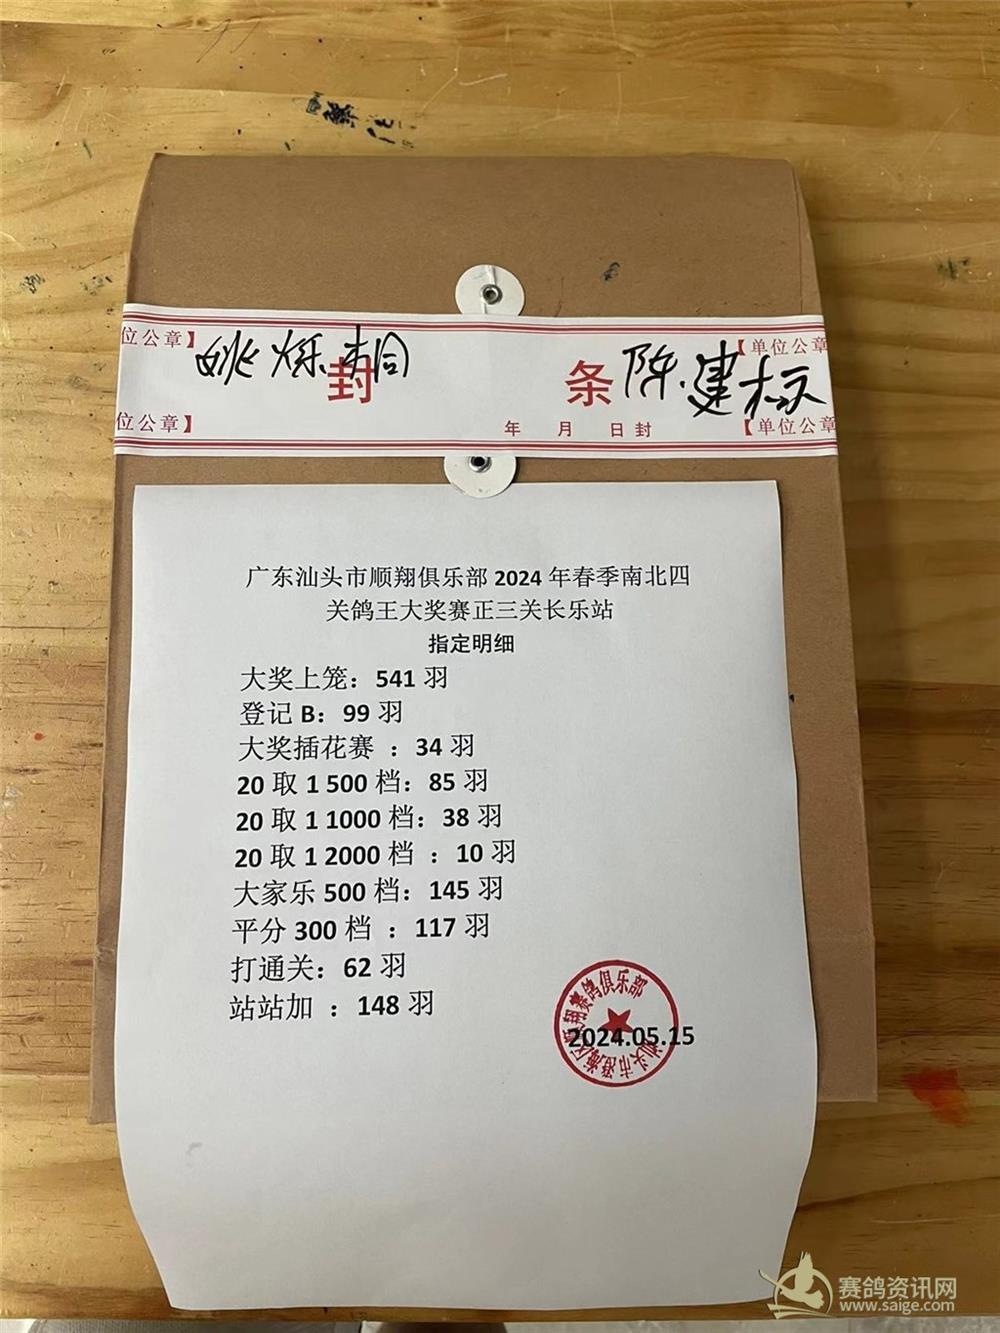 位公章】
【单位公章
姚烁桐
封
条
陈建标
位公章】
年 月 日封
【单位公章
广东汕头市顺翔俱乐部 2024 年春季南北四
关鸽王大奖赛正三关长乐站
指定明细
大奖上笼：541 羽
登记 B：99 羽
大奖插花赛 ：34 羽
20 取 1 500 档：85 羽
20 取 1 1000 档：38 羽
20 取 1 2000 档 ：10 羽
大家乐 500 档：145 羽
平分 300 档 ：117 羽
打通关：62 羽
站站加 ：148 羽
汕头市澄海区顺翔赛鸽俱乐部
2024.05.15
赛鸽资讯网
www.saige.com